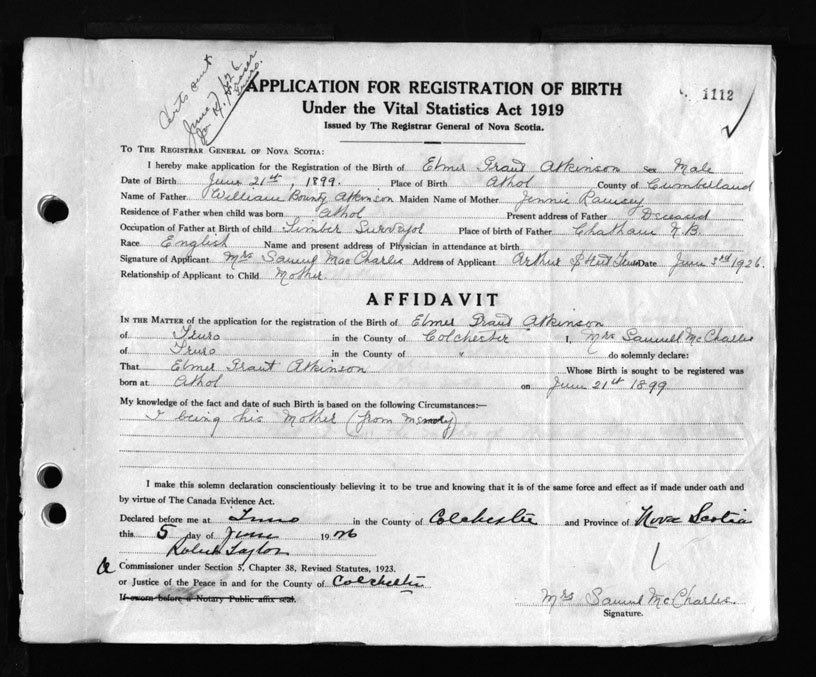 Certs out
June 7/26
APPLICATION FOR REGISTRATION OF BIRTH
1112
Under the Vital Statistics Act 1919
Issued by The Registrar General of Nova Scotia.
TO THE REGISTRAR GENERAL OF NOVA SCOTIA:
I hereby make application for the Registration of the Birth of Elmer Grant Atkinson Sex Male
Date of Birth June 21st, 1899. Place of Birth Athol County of Cumberland
Name of Father William Bounty Atkinson Maiden Name of Mother Jennie Ramsey
Residence of Father when child was born Athol Present address of Father Deceased
Occupation of Father at Birth of child Timber Surveyor Place of birth of Father Chatham N.B.
Race English Name and present address of Physician in attendance at birth
Signature of Applicant Mrs Samuel MacCharles Address of Applicant Arthur St Truro Date June 3rd 1926.
Relationship of Applicant to Child Mother
AFFIDAVIT
IN THE MATTER of the application for the registration of the Birth of Elmer Grant Atkinson
of Truro in the County of Colchester I, Mrs Samuel McCharles
of Truro in the County of " do solemnly declare:
That Elmer Grant Atkinson Whose Birth is sought to be registered was
born at Athol on June 21st 1899
My knowledge of the fact and date of such Birth is based on the following Circumstances:—
I being his Mother (from memory)
I make this solemn declaration conscientiously believing it to be true and knowing that it is of the same force and effect as if made under oath and
by virtue of The Canada Evidence Act.
Declared before me at Truro in the County of Colchester and Province of Nova Scotia
this 5 day of June 1926
A Commissioner under Section 5, Chapter 38, Revised Statutes, 1923.
or Justice of the Peace in and for the County of Colchester
If sworn before a Notary Public affix seal.
Mrs Samuel McCharles.
Signature.